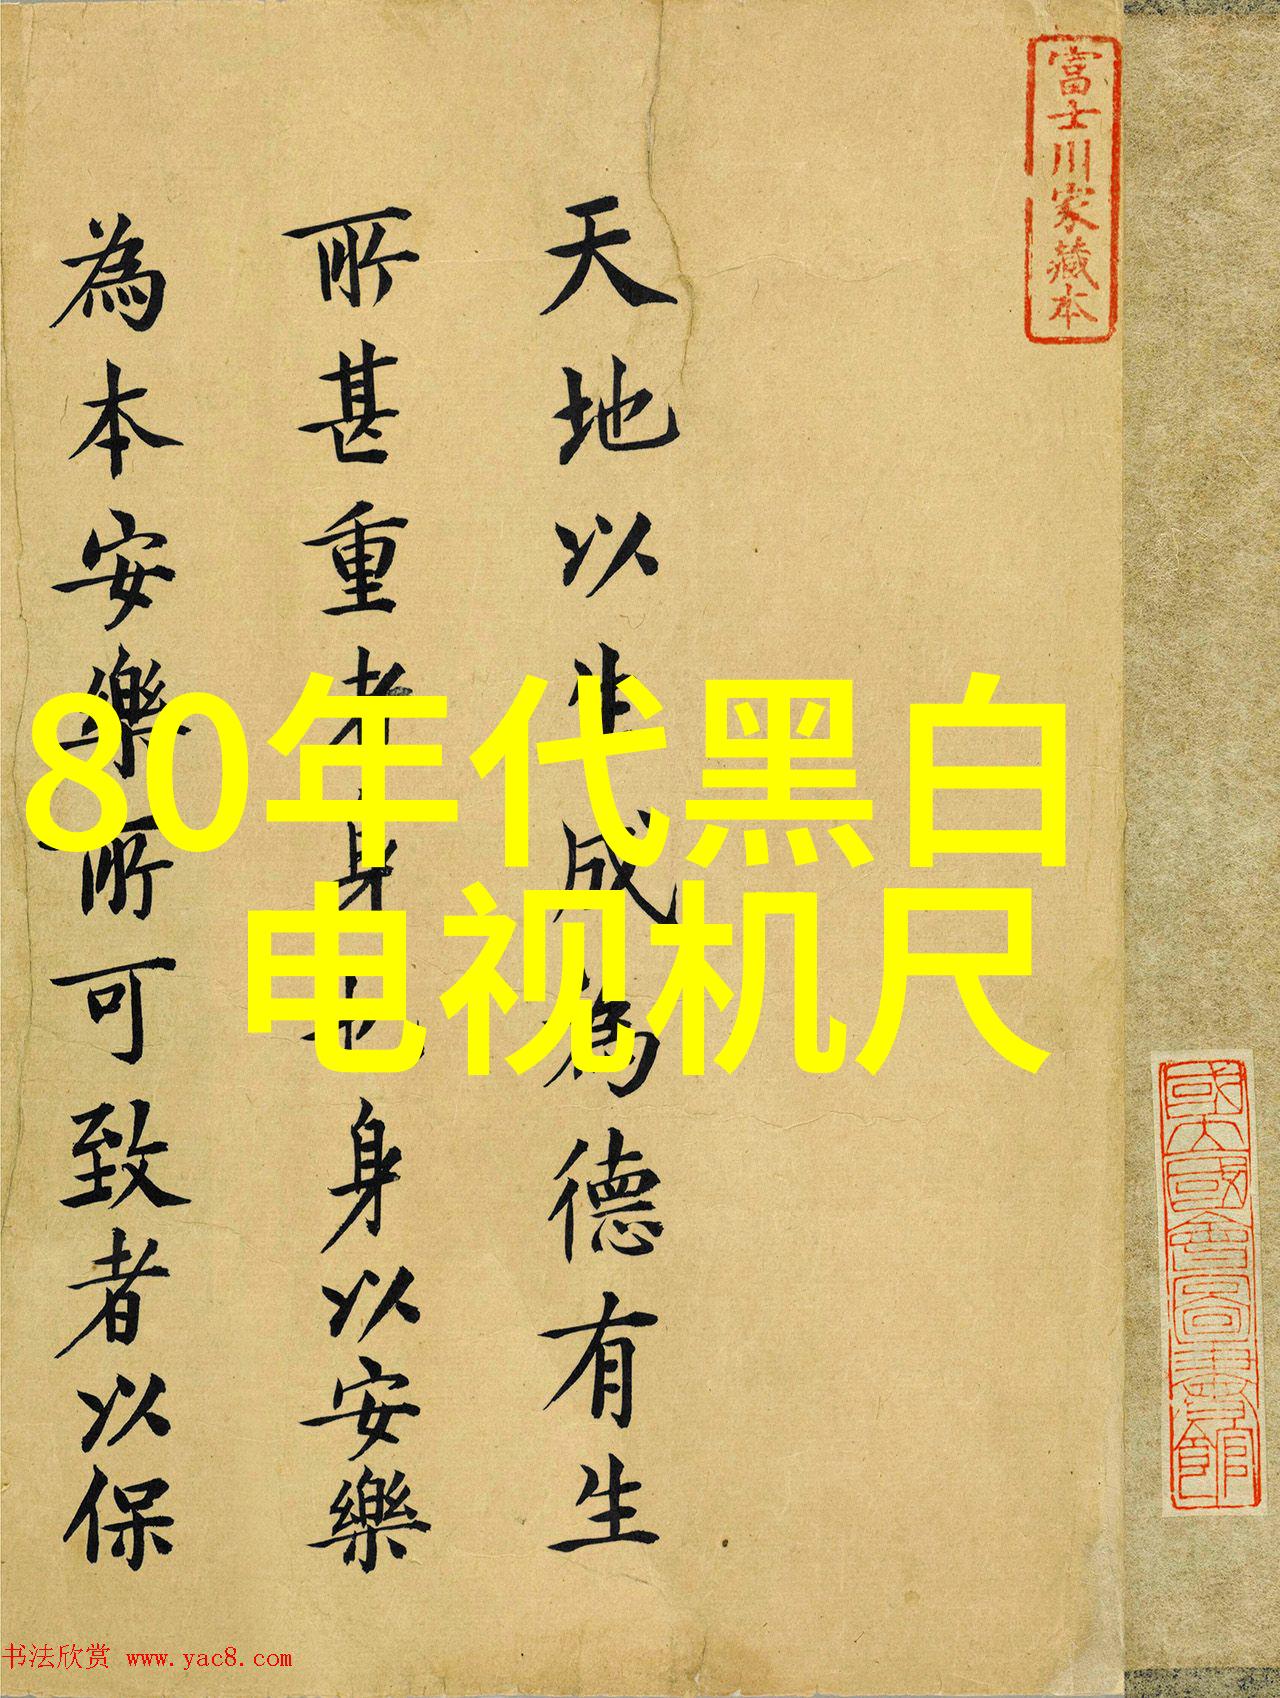 富士川家藏本
天地以生成為德有生
所甚重者身也身以安樂
為本安樂所可致者以保
80年代黑白
电视机尺
國立國會圖書館
书法欣赏 www.yac8.com